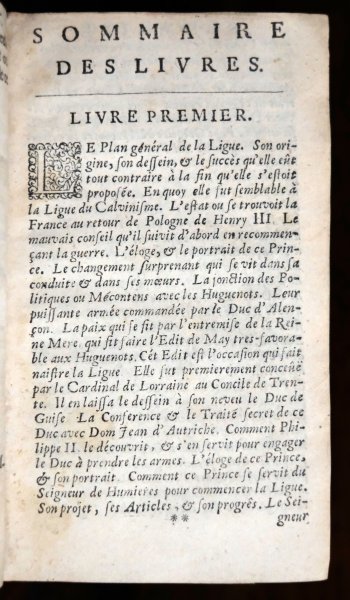 SOMMAIRE
DES LIVRES.
LIVRE PREMIER.
LE Plan général de la Ligue. Son ori-
gine, son dessein, & le succés qu'elle eût
tout contraire à la fin qu'elle s'estoit
proposée. En quoy elle fut semblable à
la Ligue du Calvinisme. L'estat ou se trouvoit la
France au retour de Pologne de Henry III. Le
mauvais conseil qu'il suivit d'abord en recommen-
çant la guerre. L'éloge, & le portrait de ce Prin-
ce. Le changement surprenant qui se vit dans sa
conduite & dans ses mœurs. La jonction des Po-
litiques ou Mécontens avec les Huguenots. Leur
puissante armée commandée par le Duc d'Alen-
çon. La paix qui se fit par l'entremise de la Rei-
ne Mere, qui fit faire l'Edit de May tres-favora-
ble aux Huguenots. Cét Edit est l'occasion qui fait
naistre la Ligue. Elle fut premierement conceüe
par le Cardinal de Lorraine au Concile de Tren-
te. Il en laissa le dessein à son neveu le Duc de
Guise. La Conference & le Traité secret de ce
Duc avec Dom Jean d'Autriche. Comment Phi-
lippe II. le découvrit, & s'en servit pour engager
le Duc à prendre les armes. L'éloge de ce Prince,
& son portrait. Comment ce Prince se servit du
Seigneur de Humieres pour commencer la Ligue.
Son projet, ses Articles, & son progrés. Le Sei-
** gneur